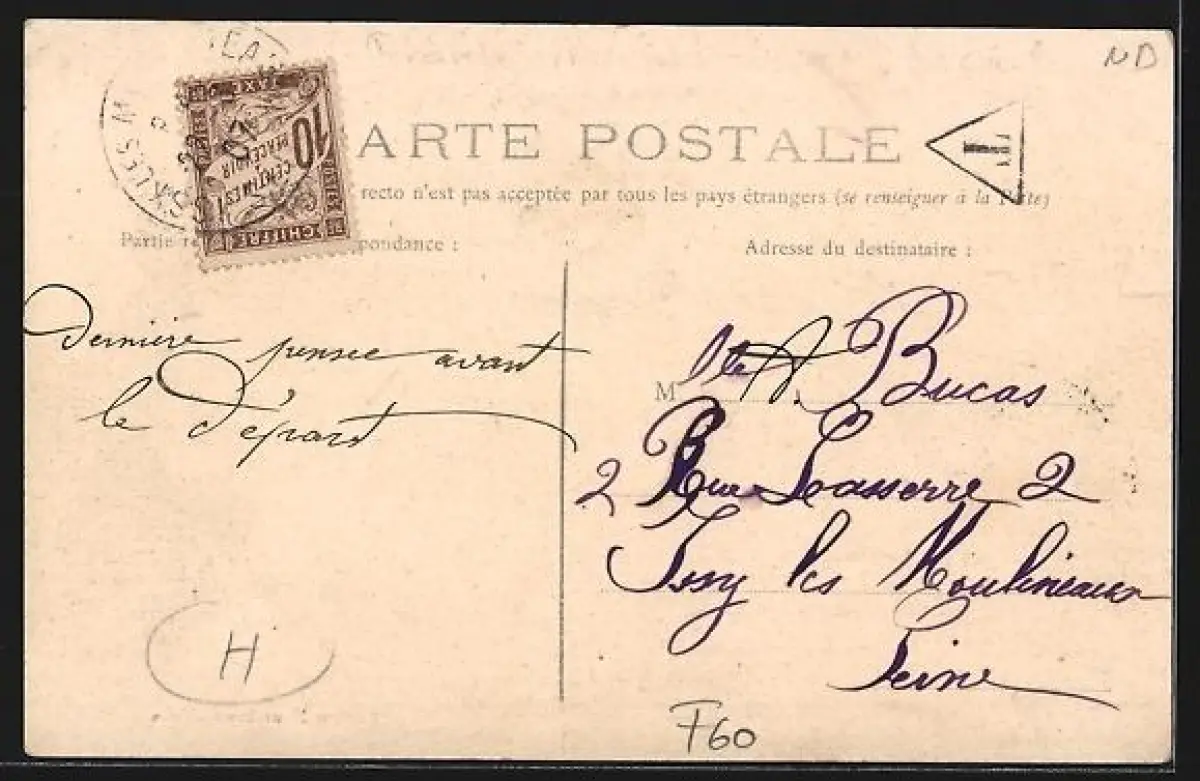 ND
ARTE POSTALE
T
recto n'est pas acceptée par tous les pays étrangers (se renseigner à la Poste)
Partie re pondance :
Adresse du destinataire :
10
CENTIMES
À
PERCEVOIR
TAXE
CHIFFRE
Dernière pensée avant
le Départ
M lle A. Bucas
2 Rue Lasserre 2
Issy les Moulineaux
Seine
H
F60